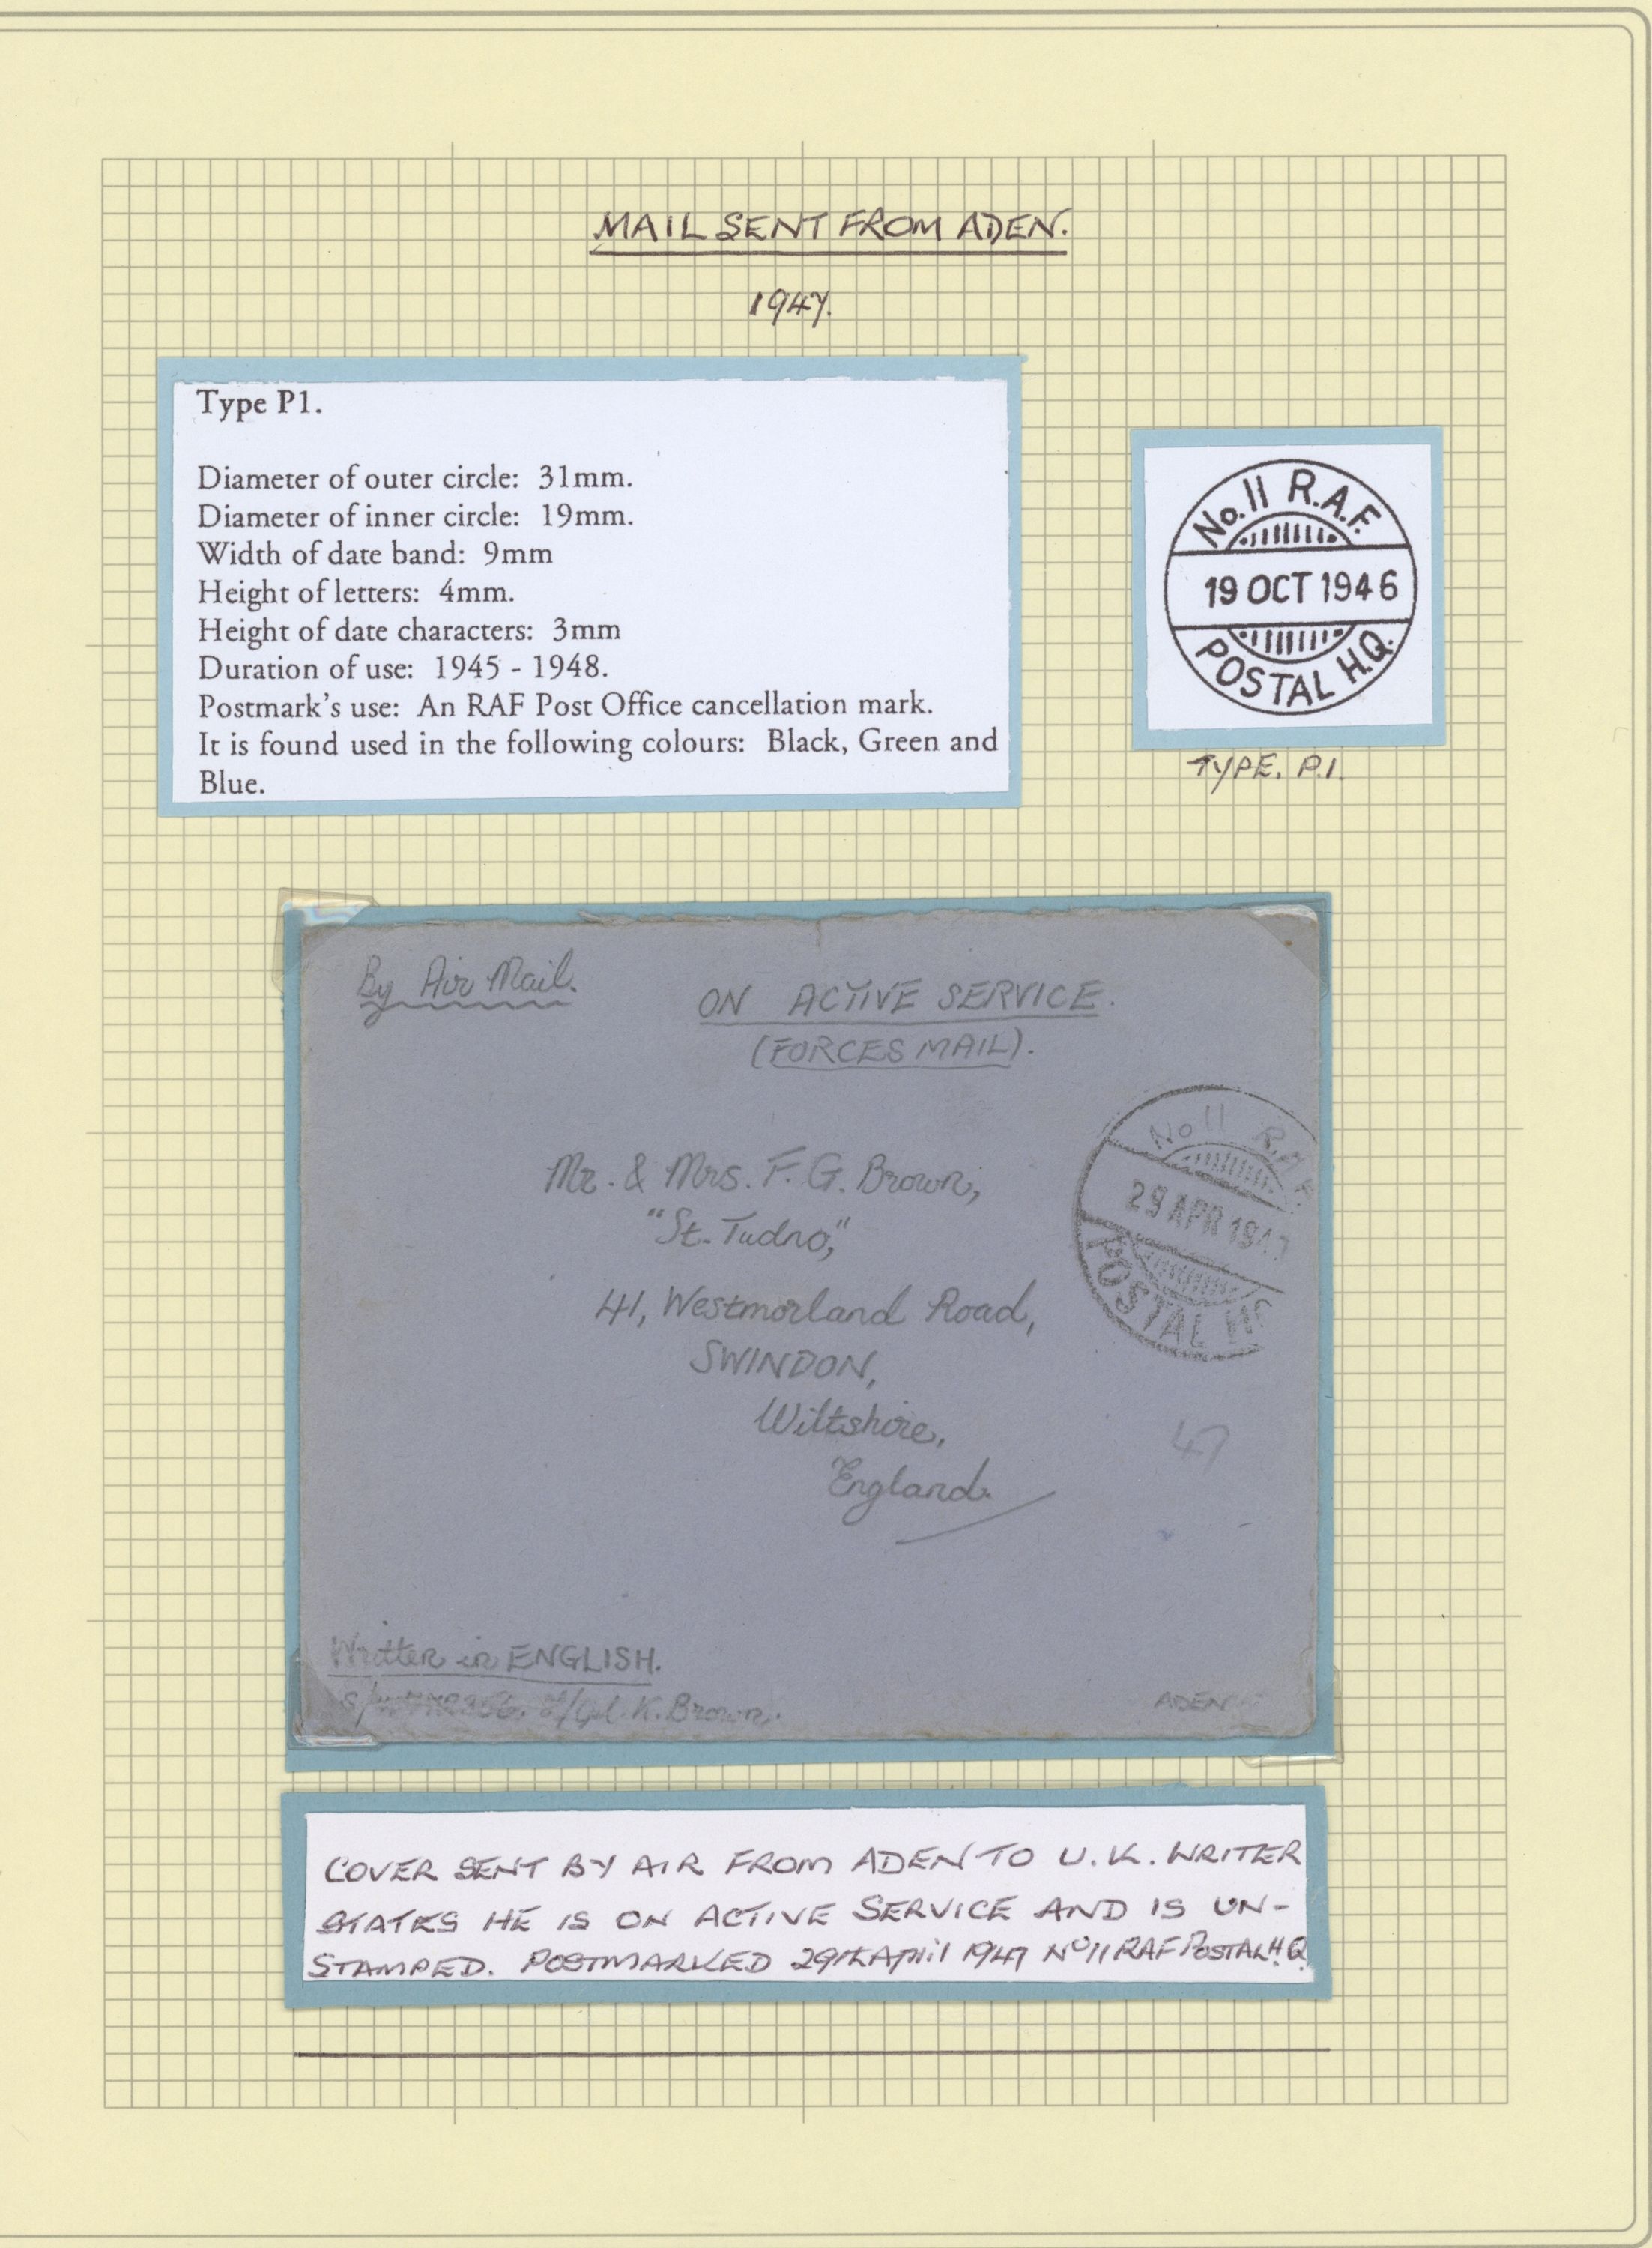 MAIL SENT FROM ADEN.
1947.
Type P1.
Diameter of outer circle: 31mm.
Diameter of inner circle: 19mm.
Width of date band: 9mm
Height of letters: 4mm.
Height of date characters: 3mm
Duration of use: 1945 - 1948.
Postmark's use: An RAF Post Office cancellation mark.
It is found used in the following colours: Black, Green and
Blue.
No. 11 R.A.F.
19 OCT 1946
POSTAL H.Q.
TYPE. P.1.
By Air Mail.
ON ACTIVE SERVICE.
(FORCES MAIL).
Mr. & Mrs. F. G. Brown,
"St. Tudno,"
41, Westmorland Road,
SWINDON,
Wiltshire,
England.
No 11 R.A.F.
29 APR 1947
POSTAL
47
Written in ENGLISH.
K. Brown.
ADEN
COVER SENT BY AIR FROM ADEN TO U.K. WRITER
STATES HE IS ON ACTIVE SERVICE AND IS UN-
STAMPED. POSTMARKED 29th April 1947 No 11 RAF POSTAL H.Q.